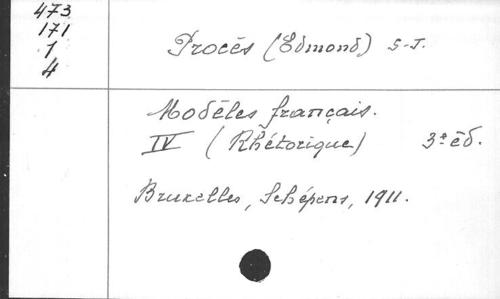 473
171
1
4
Procès (Edmond) S-J.
Modèles français.
IV (Rhétorique) 3e éd.
Bruxelles, Schépens, 1911.